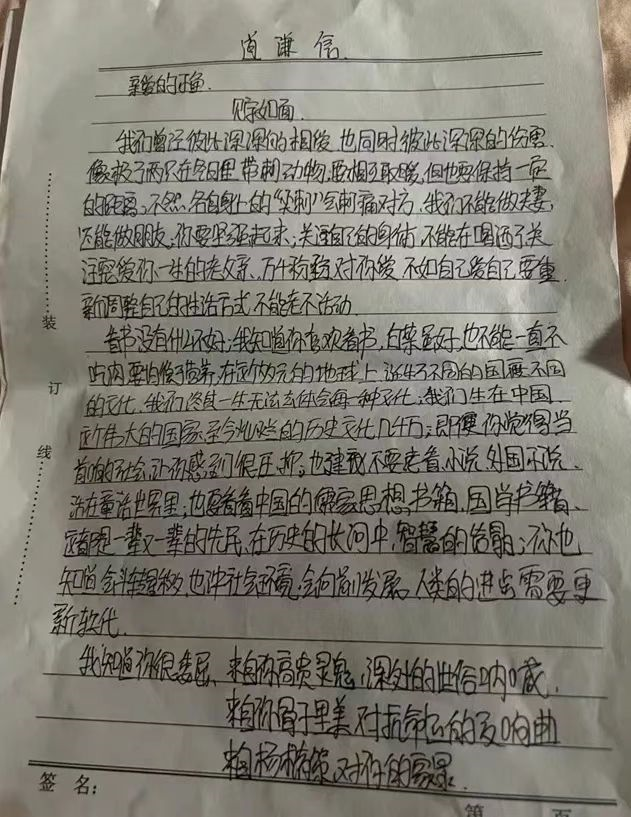 道谦信.
亲爱的正鱼
见字如面
我们曾经彼此深深的相爱 也同时彼此深深的伤害.
像极了两只在冬日里 带刺动物,要相互取暖,但也要保持一定
的距离,不然,各自身上的“尖刺”会刺痛对方,我们不能做夫妻,
还能做朋友,你要坚强起来,关注自己的身体,不能在喝酒了关
注疼爱你一生的老父亲、万千粉黛对你爱 不如自己爱自己要重
新调整自己的生活方式 不能老不活动.
看书没有什么不好;我知道你喜欢看书,白菜虽好,也不能一直不
吃肉,要均衡营养,在这的地球上 诞生了不同的国度 不同
的文化,我们终其一生无法去体会每一种文化,我们生在中国
这个伟大的国家,至今灿烂的历史文化几千万;即便你觉得当
前的社会,让你感到很压抑;也建议不要老看小说,外国小说、
活在童话世界里;也要看看中国的儒家思想,书籍、国学书籍、
这都是一辈又一辈的先民,在历史的长河中,智慧的结晶;你也
知道斗转星移,也冲社会环境,会向前发展 人类的进步需要更
新软代.
我知道你很委屈、来自你高贵灵魂,深处的世俗呐喊.
来自你骨子里美 对抗命运的交响曲
来自杨 对你的
装
订
线
签 名:
第 页